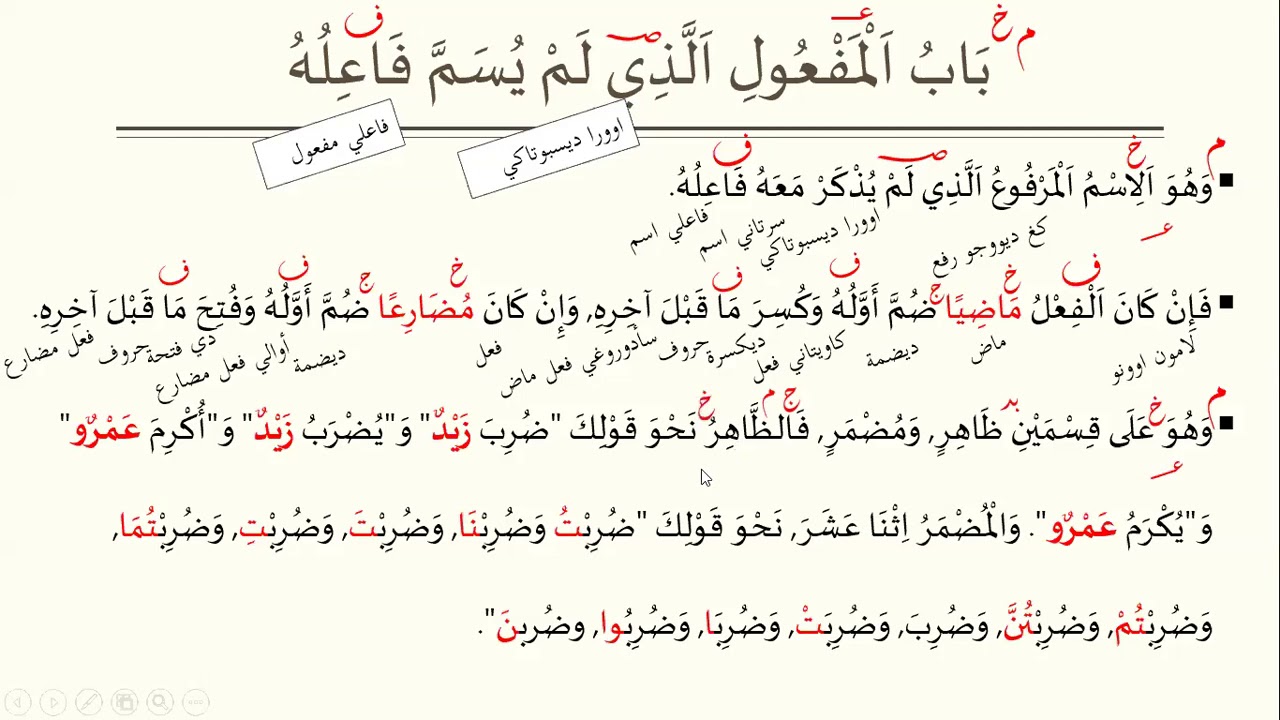 م خ عـ صـ ف
بَابُ اَلْمَفْعُولِ اَلَّذِي لَمْ يُسَمَّ فَاعِلُهُ
اوورا ديسبوتاكي
فاعلي مفعول
م خ صـ ف
وَهُوَ اَلِاسْمُ اَلْمَرْفُوعُ اَلَّذِي لَمْ يُذْكَرْ مَعَهُ فَاعِلُهُ.
عـ كغ ديووجو رفع اوورا ديسبوتاكي سرتاني اسم فاعلي اسم
ف خ ج ف ف خ ج ف ف
فَإِنْ كَانَ اَلْفِعْلُ مَاضِيًا ضُمَّ أَوَّلُهُ وَكُسِرَ مَا قَبْلَ آخِرِهِ, وَإِنْ كَانَ مُضَارِعًا ضُمَّ أَوَّلُهُ وَفُتِحَ مَا قَبْلَ آخِرِهِ.
لامون اوونو ماض ديضمة كاويتاني فعل ديكسرة حروف سادوروغي فعل ماض فعل ديضمة أوالي فعل مضارع دي فتحة حروف فعل مضارع
م خ بد ج م خ
وَهُوَ عَلَى قِسْمَيْنِ ظَاهِرٍ, وَمُضْمَرٍ, فَالظَّاهِرُ نَحْوَ قَوْلِكَ "ضُرِبَ زَيْدٌ" وَ"يُضْرَبُ زَيْدٌ" وَ"أُكْرِمَ عَمْرٌو"
عـ
وَ"يُكْرَمُ عَمْرٌو". وَالْمُضْمَرُ اِثْنَا عَشَرَ, نَحْوَ قَوْلِكَ "ضُرِبْتُ وَضُرِبْنَا, وَضُرِبْتَ, وَضُرِبْتِ, وَضُرِبْتُمَا,
وَضُرِبْتُمْ, وَضُرِبْتُنَّ, وَضُرِبَ, وَضُرِبَتْ, وَضُرِبَا, وَضُرِبُوا, وضُربنَ".